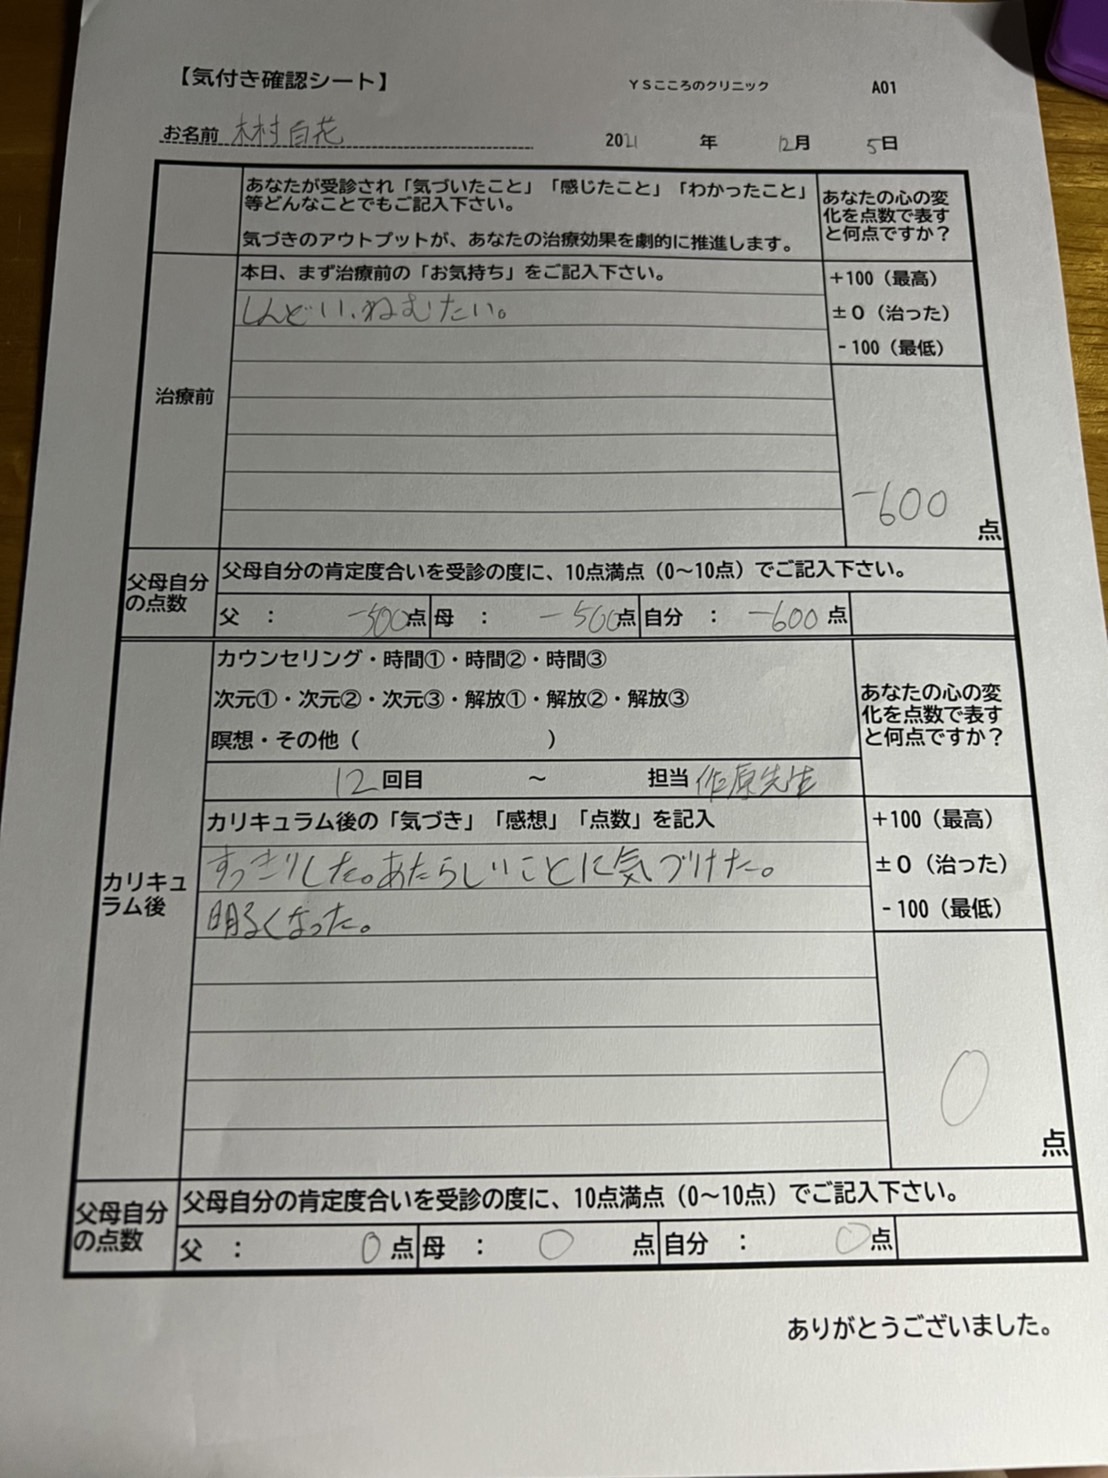 【気付き確認シート】 YSこころのクリニック A01
お名前 木村百花 2021 年 12月 5日
あなたが受診され「気づいたこと」「感じたこと」「わかったこと」
等どんなことでもご記入下さい。
気づきのアウトプットが、あなたの治療効果を劇的に推進します。
あなたの心の変
化を点数で表す
と何点ですか？
治療前
本日、まず治療前の「お気持ち」をご記入下さい。
しんどい、ねむたい。
+100（最高）
±0（治った）
-100（最低）
-600
点
父母自分
の点数
父母自分の肯定度合いを受診の度に、10点満点（0〜10点）でご記入下さい。
父 ： -500点 母 ： -500点 自分 ： -600 点
カウンセリング・時間①・時間②・時間③
次元①・次元②・次元③・解放①・解放②・解放③
瞑想・その他（ ）
12回目 〜 担当 作原先生
あなたの心の変
化を点数で表す
と何点ですか？
カリキュ
ラム後
カリキュラム後の「気づき」「感想」「点数」を記入
すっきりした。あたらしいことに気づけた。
明るくなった。
+100（最高）
±0（治った）
-100（最低）
0
点
父母自分
の点数
父母自分の肯定度合いを受診の度に、10点満点（0〜10点）でご記入下さい。
父 ： 0 点 母 ： 0 点 自分 ： 0点
ありがとうございました。